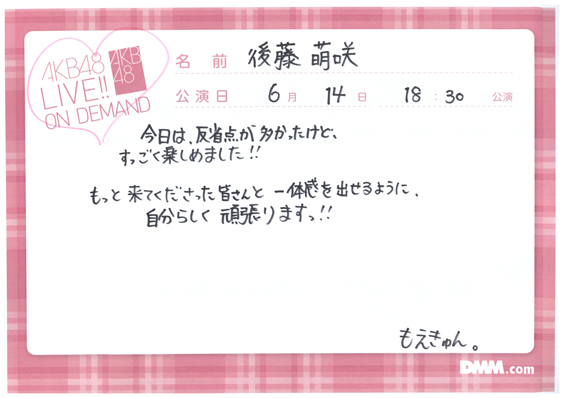 AKB48
LIVE!!
ON DEMAND
AKB
48
名 前 後藤 萌咲
公演日 6月 14日 18:30 公演
今日は、反省点が多かったけど、
すっごく楽しめました!!
もっと 来てくださった皆さんと 一体感を出せるように、
自分らしく 頑張りますっ!!
もえきゅん。
DMM.com